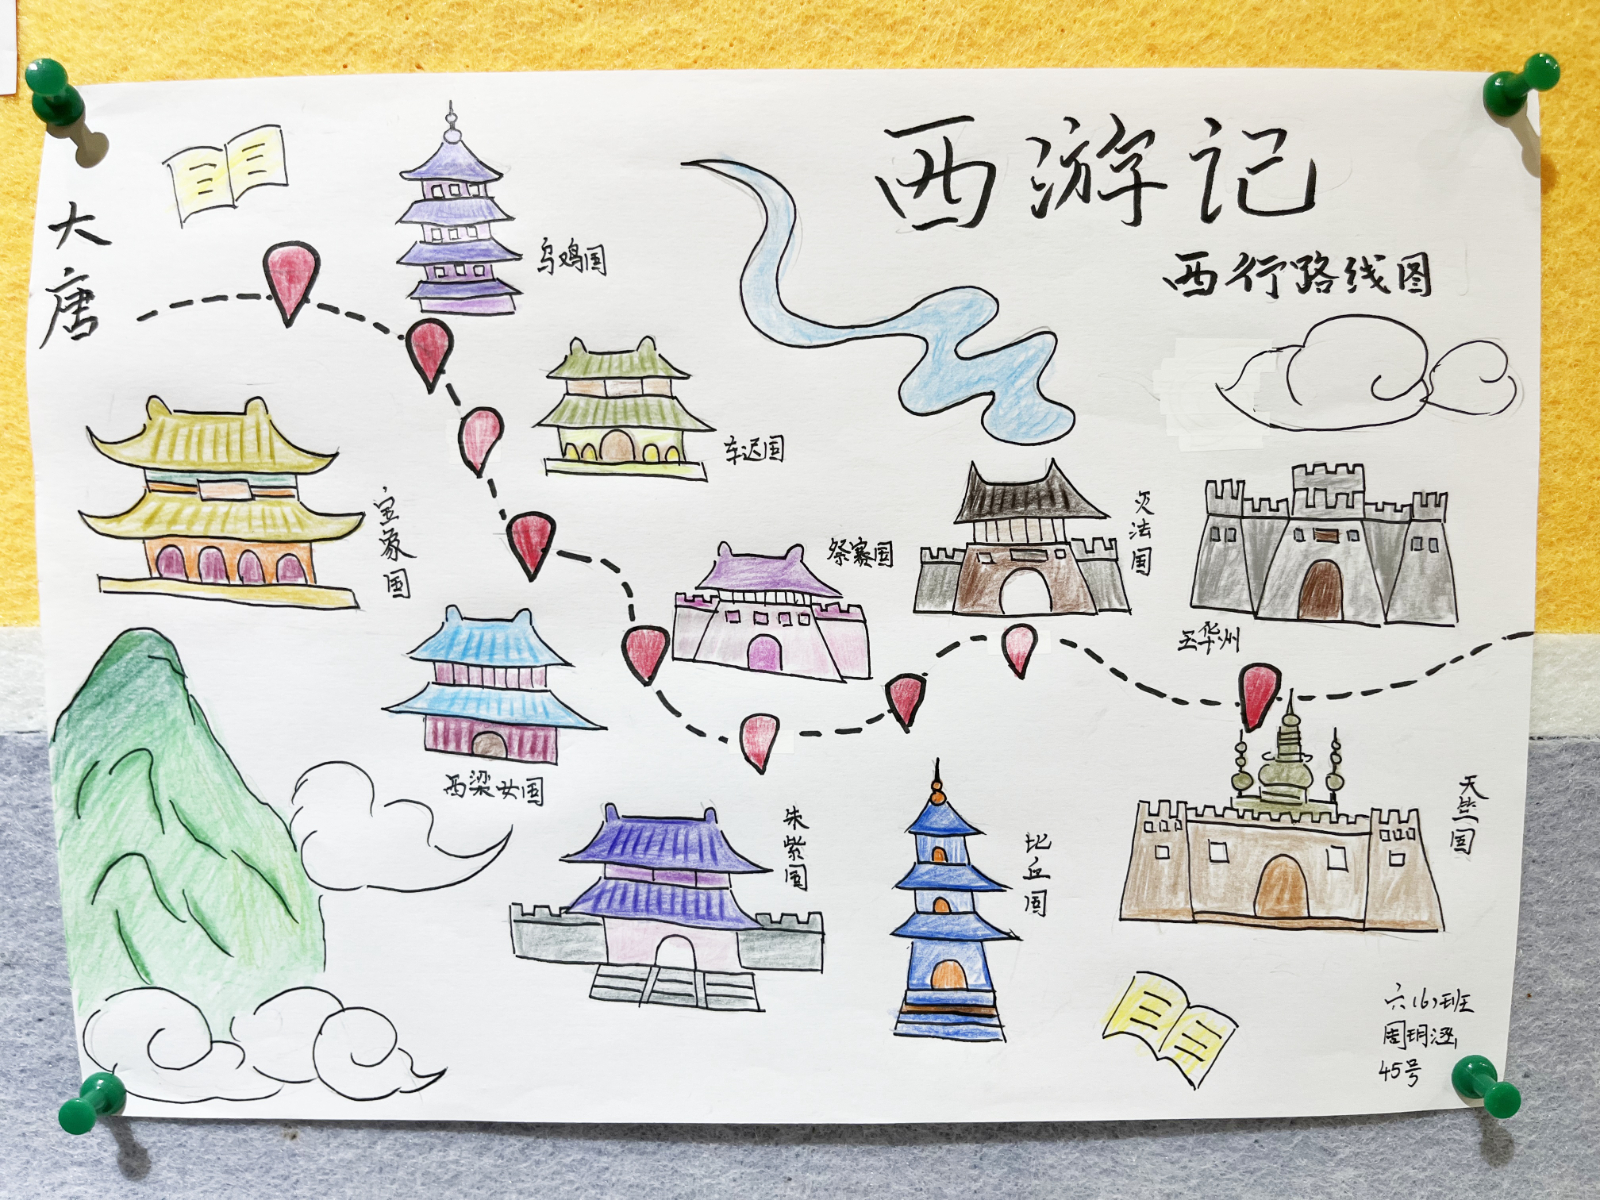 西游记
西行路线图
大唐
乌鸡国
车迟国
宝象国
祭赛国
灭法国
玉华州
西梁女国
朱紫国
比丘国
天竺国
六(6)班
周玥涵
45号